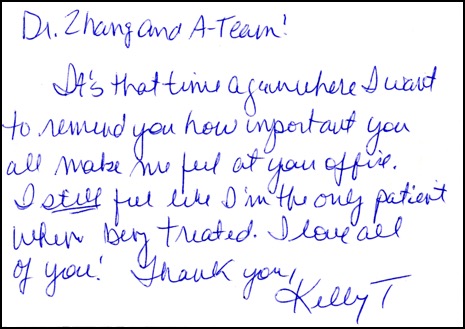 Dr. Zhang and A-Team!
It's that time again where I want
to remind you how important you
all make me feel at your office.
I still feel like I'm the only patient
when being treated. I love all
of you! Thank you,
Kelly T